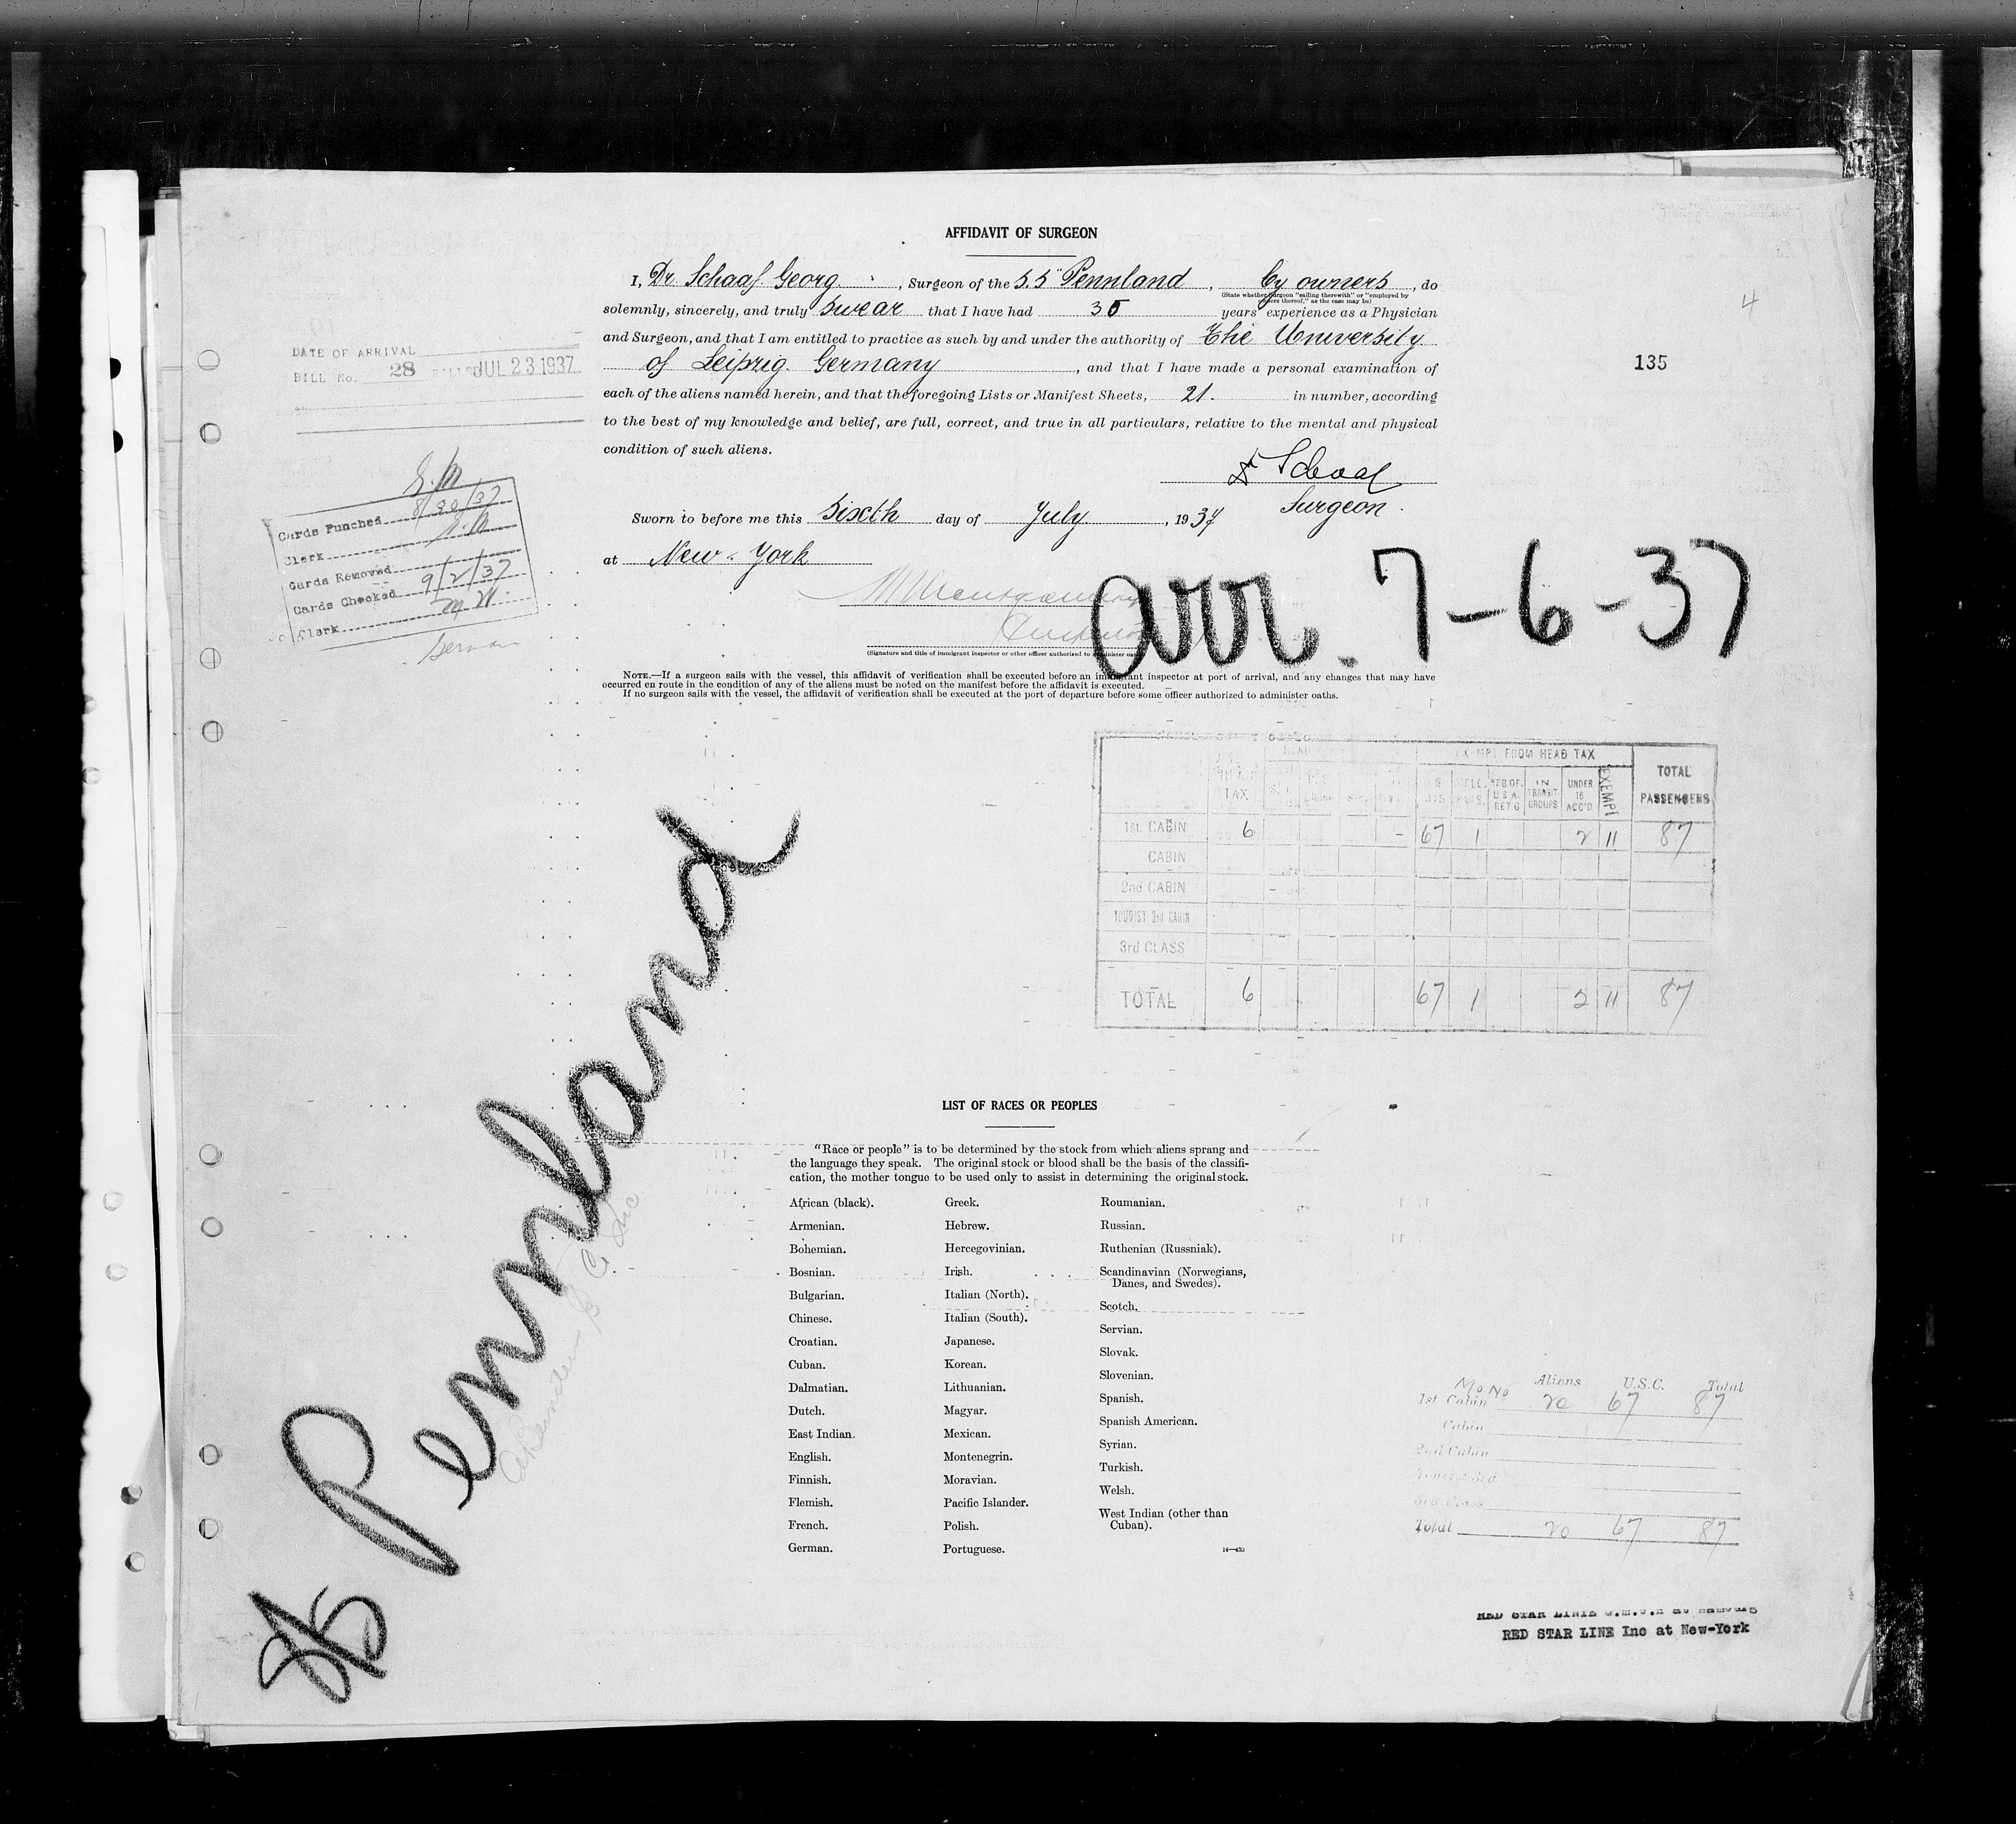 AFFIDAVIT OF SURGEON
I, Dr. Schaaf Georg. , Surgeon of the S.S "Pennland , by owners , do
(State whether surgeon "sailing therewith" or "employed by
owners thereof," as the case may be)
solemnly, sincerely, and truly swear that I have had 35 years' experience as a Physician
and Surgeon, and that I am entitled to practice as such by and under the authority of The University
of Leipzig. Germany , and that I have made a personal examination of
each of the aliens named herein, and that the foregoing Lists or Manifest Sheets, 21. in number, according
to the best of my knowledge and belief, are full, correct, and true in all particulars, relative to the mental and physical
condition of such aliens.
Dr Schaaf
Surgeon.
Sworn to before me this Sixth day of July , 1937
at New-York
(Signature and title of immigrant inspector or other officer authorized to administer oaths)
NOTE.—If a surgeon sails with the vessel, this affidavit of verification shall be executed before an immigrant inspector at port of arrival, and any changes that may have
occurred en route in the condition of any of the aliens must be noted on the manifest before the affidavit is executed.
If no surgeon sails with the vessel, the affidavit of verification shall be executed at the port of departure before some officer authorized to administer oaths.
4
135
DATE OF ARRIVAL
BILL No. 28 BILLS JUL 23 1937
Cards Punched 8/30/37
Clerk
Cards Removed
Cards Checked 9/2/37
Clerk
arr. 7-6-37
SS Pennland
EXEMPT FROM HEAD TAX
TOTAL PASSENGERS
TAX
U.S.A. RET'G
IN TRANSIT GROUPS
UNDER 16 ACC'D
EXEMPT
1st CABIN 6 - 67 1 2 11 87
CABIN
2nd CABIN
TOURIST 3rd CABIN
3rd CLASS
TOTAL 6 67 1 2 11 87
LIST OF RACES OR PEOPLES
"Race or people" is to be determined by the stock from which aliens sprang and
the language they speak. The original stock or blood shall be the basis of the classifi-
cation, the mother tongue to be used only to assist in determining the original stock.
African (black).
Armenian.
Bohemian.
Bosnian.
Bulgarian.
Chinese.
Croatian.
Cuban.
Dalmatian.
Dutch.
East Indian.
English.
Finnish.
Flemish.
French.
German.
Greek.
Hebrew.
Hercegovinian.
Irish.
Italian (North).
Italian (South).
Japanese.
Korean.
Lithuanian.
Magyar.
Mexican.
Montenegrin.
Moravian.
Pacific Islander.
Polish.
Portuguese.
Roumanian.
Russian.
Ruthenian (Russniak).
Scandinavian (Norwegians,
Danes, and Swedes).
Scotch.
Servian.
Slovak.
Slovenian.
Spanish.
Spanish American.
Syrian.
Turkish.
Welsh.
West Indian (other than
Cuban).
14—430
Aliens U.S.C. Total
1st Cabin 20 67 87
Cabin
2nd Cabin
3rd Class
Total 20 67 87
RED STAR LINIE G.m.b.H at Hamburg
RED STAR LINE Inc at New-York